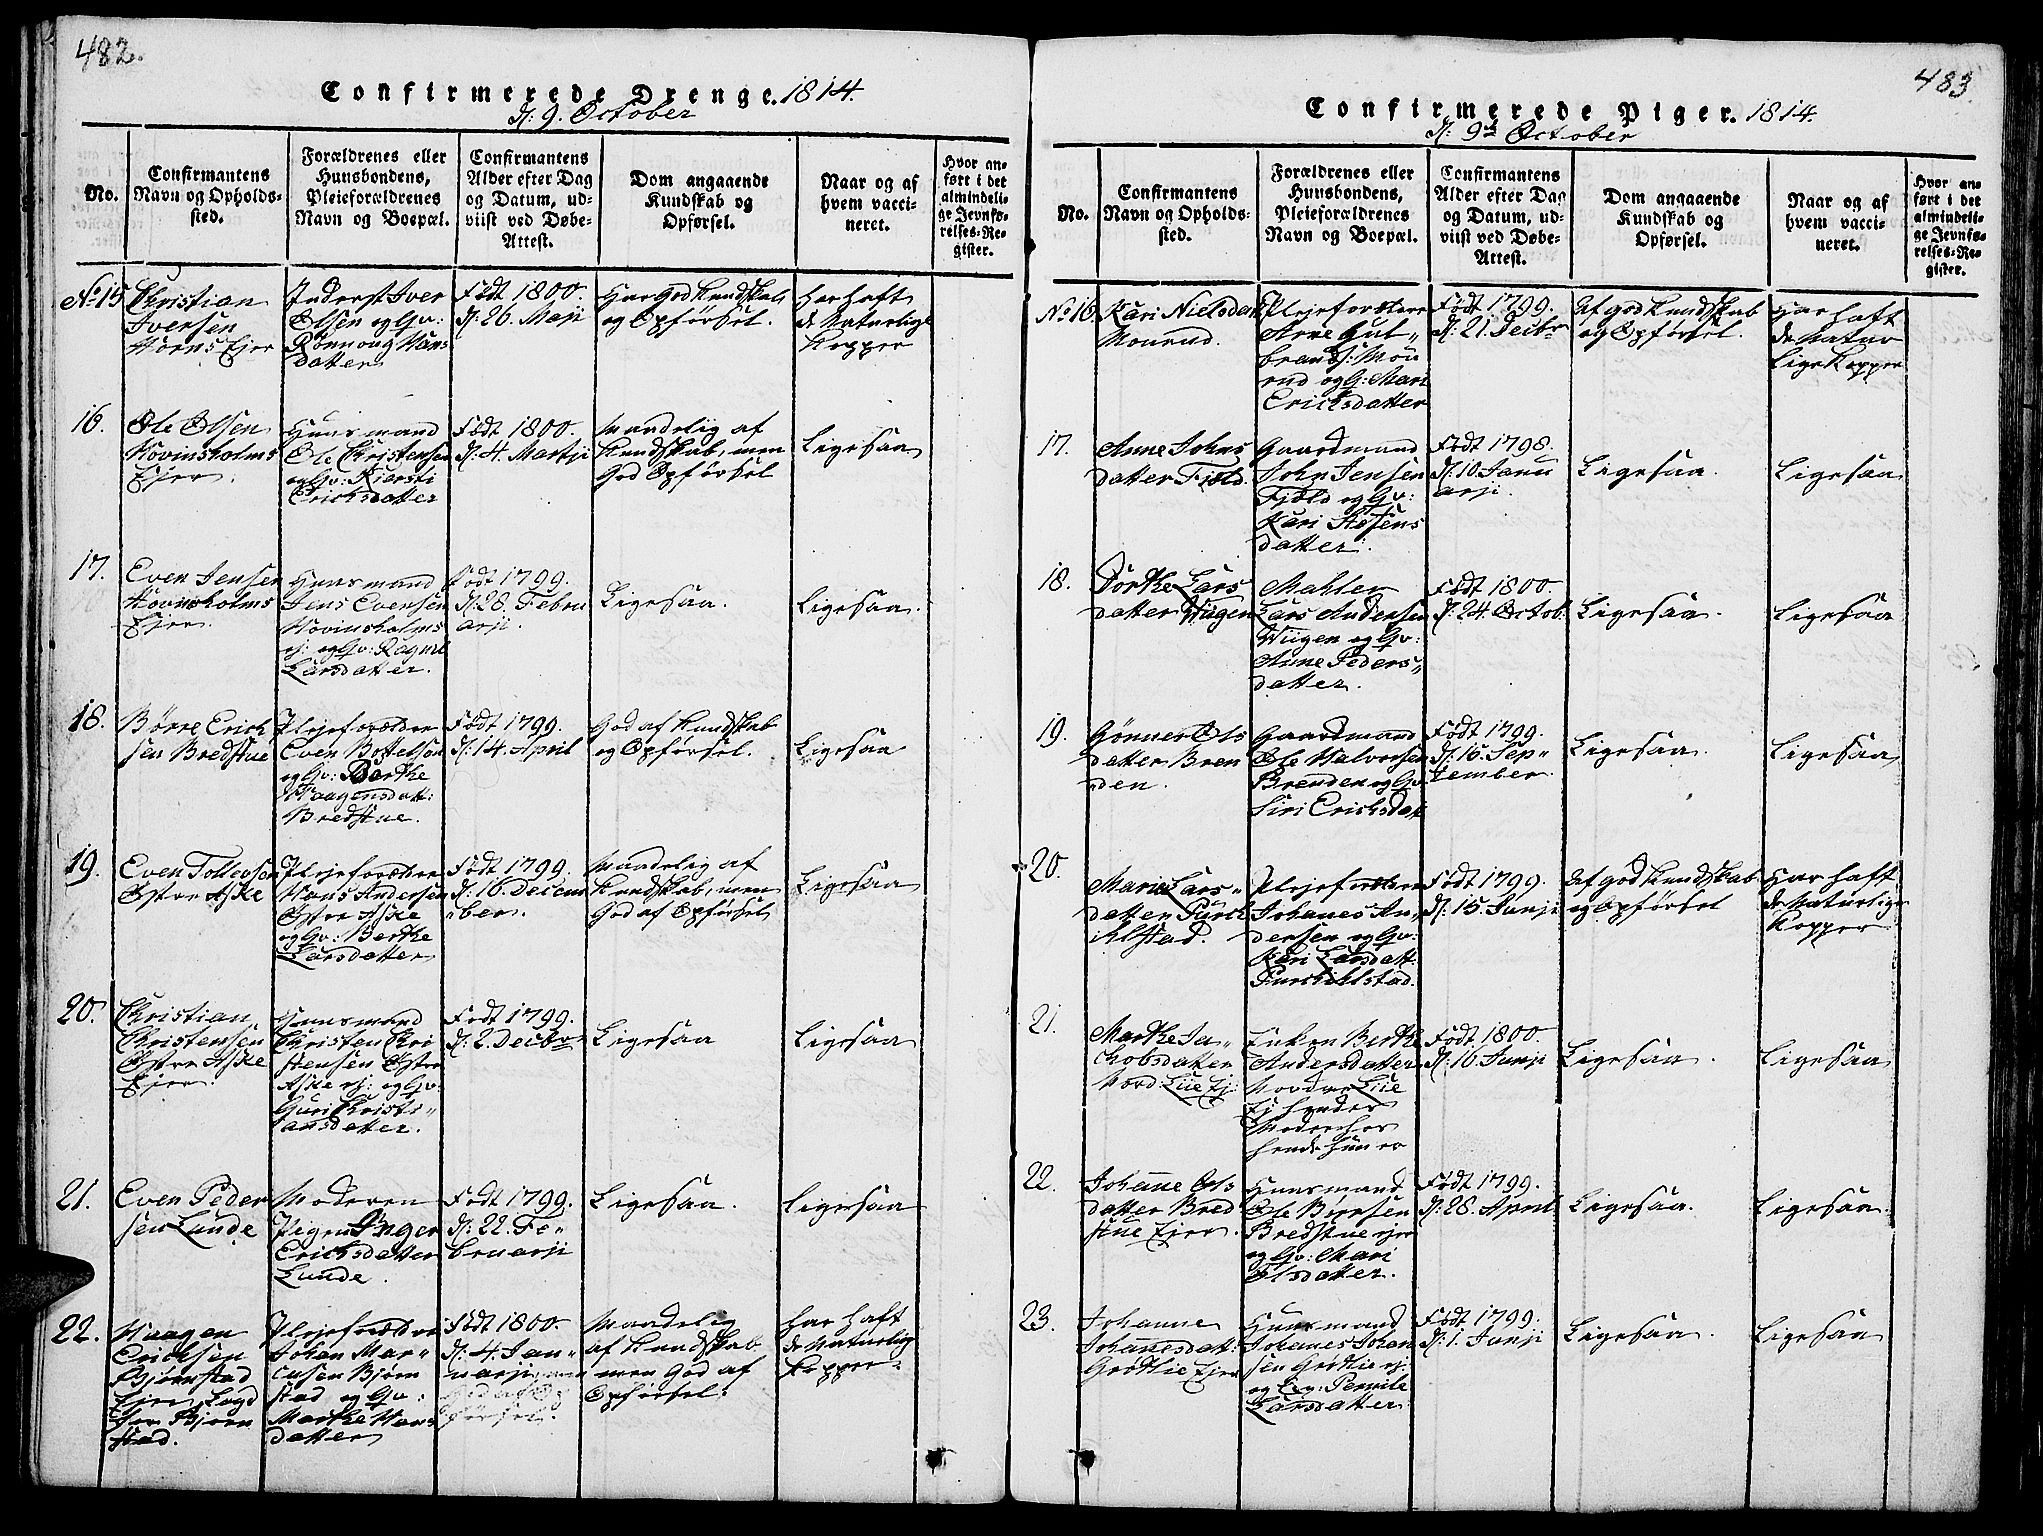 482.
Confirmerede Drenge. 1814.
d: 9. October
No.
Confirmantens
Navn og Opholds-
sted.
Forældrenes eller
Huusbondens,
Pleieforældrenes
Navn og Boepæl.
Confirmantens
Alder efter Dag
og Datum, ud-
viist ved Døbe-
Attest.
Dom angaaende
Kundskab og
Opførsel.
Naar og af
hvem vacci-
neret.
Hvor an-
ført i det
almindeli-
ge Jevnfø-
relses-Re-
gister.
No 15
Christian
Iversen
Horns Ejer
Inderst Iver
Olsen og Gv:
Rønnoug Hans
datter
Født 1800.
d: 26. Maji
Har god Kundskab
og Opførsel.
har haft
de Naturlige
Kopper
16.
Ole Olsen
Hovinsholms
Ejer.
Huusmand
Ole Christensen
og Gv: Kiersti
Erichsdatter
Født 1800.
d: 4. Martji
Maadelig af
Kundskab, men
God Opførsel
Ligesaa
17.
Even Jensen
Hovinsholms
Ejer.
Huusmand
Jens Evensen
Hovinsholms
ej: og Gv: Ragnil
Larsdatter.
Født 1799.
d: 28. Febru
arji.
Ligesaa.
Ligesaa.
18.
Børre Erich
sen Bredstue
Plejeforældre
Even Bottelsen
og Gv: Berthe
Haagensdatt:
Bredstue.
Født 1799.
d: 14. April
God af Kundskab
og Opførsel.
Ligesaa
19.
Even Tollevsen
Østre Aske
Plejeforældre
Hans Andersen
Østre Aske
og Gv: Berthe
Larsdatter
Født 1799.
d: 16. Decem
"ber.
Maadelig af
Kundskab, men
God af Opførsel
Ligesaa
20.
Christian
Christensen
Østre Aske
Ejer.
Huusmand
Christen Chri
stensen Østre
Aske ej: og Gv:
Guri Christi"
ansdatter.
Født 1799.
d: 2. Decbr
Ligesaa
Ligesaa
21.
Even Peder
sen Lunde
Moderen
Pigen Inger
Erichsdatter
Lunde.
Født 1799.
d: 22. Fe"
bruarji
Ligesaa.
Ligesaa
22.
Haagen
Erichsen
Bjørnstad
Ejer Logd
Jor Bjørn
stad.
Plejeforældre
Johan Mar"
cusen Bjørn
stad og Gv:
Marthe Hans
datter
Født 1800.
d: 4. Jan"
uarji, men
God af Op
førsel.
Maadelig
af Kundskab
men God af
Opførsel.
har haft
de Naturlig
Kopper
483.
Confirmerede Piger. 1814.
d: 9de October
No.
Confirmantens
Navn og Opholds-
sted.
Forældrenes eller
Huusbondens,
Pleieforældrenes
Navn og Boepæl.
Confirmantens
Alder efter Dag
og Datum, ud-
viist ved Døbe-
Attest.
Dom angaaende
Kundskab og
Opførsel.
Naar og af
hvem vacci-
neret.
Hvor an-
ført i det
almindeli-
ge Jevnfø-
relses-Re-
gister.
No 16
Kari Nielsdat
Mourud.
Plejeforældre
Arne Gul"
brands: Mou
rud og G: Mari
Erichsdatter
Født 1799.
d: 21. Decbr
Af god Kundskab
og Opførsel.
Har haft
de Natur
lige Kopper
17.
Anne Johns
datter Fjeld.
Gaardmand
John Jensen
Fjæld og Gv:
Kari Stefens
datter.
Født 1798.
d: 10. Janu
arji.
Ligesaa.
Ligesaa
18.
Dorthe Lars
datter Wiigen
Mahler
Lars Andersen
Wiigen og Gv:
Anne Peders"
datter.
Født 1800.
d: 24. Octob.
Ligesaa.
Ligesaa
19.
Gønner Ols
datter Bren
den.
Gaardmand
Ole Halvorsen
Brenden og Gv
Siri Erichsdat
Født 1799.
d: 15. Sep"
tember.
Ligesaa.
Ligesaa
20.
Marie Lars"
datter Purch
ihlstad.
Plejeforældre
Johanes An"
dersen og Gv:
Kari Larsdatt:
Purchihlstad.
Født 1799.
d: 15. Junji
Af god Kundskab
og Opførsel
Har haft
de Naturlige
Kopper
21.
Marthe Ja"
chobsdatter
Nord: Liie Ej:
Enken Berthe
Andersdatter
Nordre Liie
Ej: hendes
Moder hos
hende hun er
Født 1800.
d: 16. Junji
Ligesaa.
Ligesaa
22.
Johanne Ols
datter Bred
stue Ejer.
Huusmand
Ole Børrsen
Bredstue ejer
og Gv: Mari
Olsdatter.
Født 1799.
d: 28. April
Ligesaa.
Ligesaa.
23.
Johanne
Johanesdatt:
Grøtlie Ejer
Huusmand
Johanes Johan
sen Grøtlie ej:
og Gv: Pernile
Larsdatter
Født 1799.
d: 1. Junji
Ligesaa.
Ligesaa